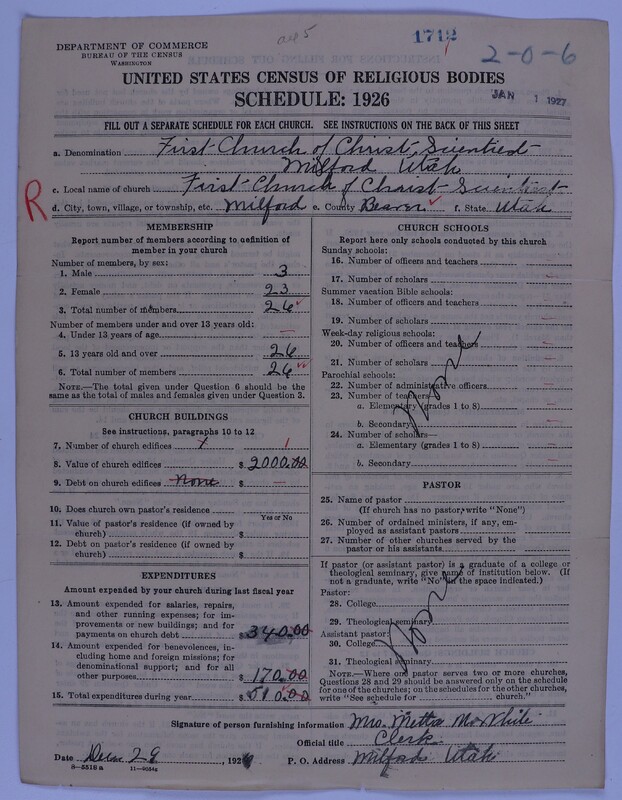 1712
2-0-6
DEPARTMENT OF COMMERCE
BUREAU OF THE CENSUS
WASHINGTON
UNITED STATES CENSUS OF RELIGIOUS BODIES
SCHEDULE: 1926
JAN 1 1927
FILL OUT A SEPARATE SCHEDULE FOR EACH CHURCH. SEE INSTRUCTIONS ON THE BACK OF THIS SHEET
a. Denomination First Church of Christ, Scientist
Milford Utah
c. Local name of church First Church of Christ Scientist
R
d. City, town, village, or township, etc. Milford e. County Beaver f. State Utah
MEMBERSHIP
Report number of members according to definition of
member in your church
Number of members, by sex:
1. Male 3
2. Female 23
3. Total number of members 26
Number of members under and over 13 years old:
4. Under 13 years of age —
5. 13 years old and over 26
6. Total number of members 26
NOTE.—The total given under Question 6 should be
same as the total of males and females given under Question 3.
CHURCH BUILDINGS
See instructions, paragraphs 10 to 12
7. Number of church edifices 1 1
8. Value of church edifices $ 2000.00
9. Debt on church edifices None $ —
10. Does church own pastor's residence
Yes or No
11. Value of pastor's residence (if owned by
church) $
12. Debt on pastor's residence (if owned by
church) $
EXPENDITURES
Amount expended by your church during last fiscal year
13. Amount expended for salaries, repairs,
and other running expenses; for im-
provements or new buildings; and for
payments on church debt $ 340.00
14. Amount expended for benevolences,
including home and foreign missions; for
denominational support; and for all
other purposes $ 170.00
15. Total expenditures during year $ 510.00
CHURCH SCHOOLS
Report here only schools conducted by this church
Sunday schools:
16. Number of officers and teachers
17. Number of scholars
Summer vacation Bible schools:
18. Number of officers and teachers
19. Number of scholars
Week-day religious schools:
20. Number of officers and teachers
21. Number of scholars
Parochial schools:
22. Number of administrative officers
23. Number of teachers—
a. Elementary (grades 1 to 8)
b. Secondary
24. Number of scholars—
a. Elementary (grades 1 to 8)
b. Secondary
None
PASTOR
25. Name of pastor
(If church has no pastor, write "None")
26. Number of ordained ministers, if any, em-
ployed as assistant pastors
27. Number of other churches served by the
pastor or his assistants
If pastor (or assistant pastor) is a graduate of a college or
theological seminary, give name of institution below. (If
not a graduate, write "No" in the space indicated.)
Pastor:
28. College
29. Theological seminary
Assistant pastor:
30. College
31. Theological seminary
None
NOTE.—Where one pastor serves two or more churches,
Questions 28 and 29 should be answered only on the schedule
for one of the churches; on the schedules for the other churches,
write "See schedule for church."
Signature of person furnishing information Mrs. Metta
Official title Clerk
Date 29, 1926 P. O. Address Milford Utah
8-5518 a